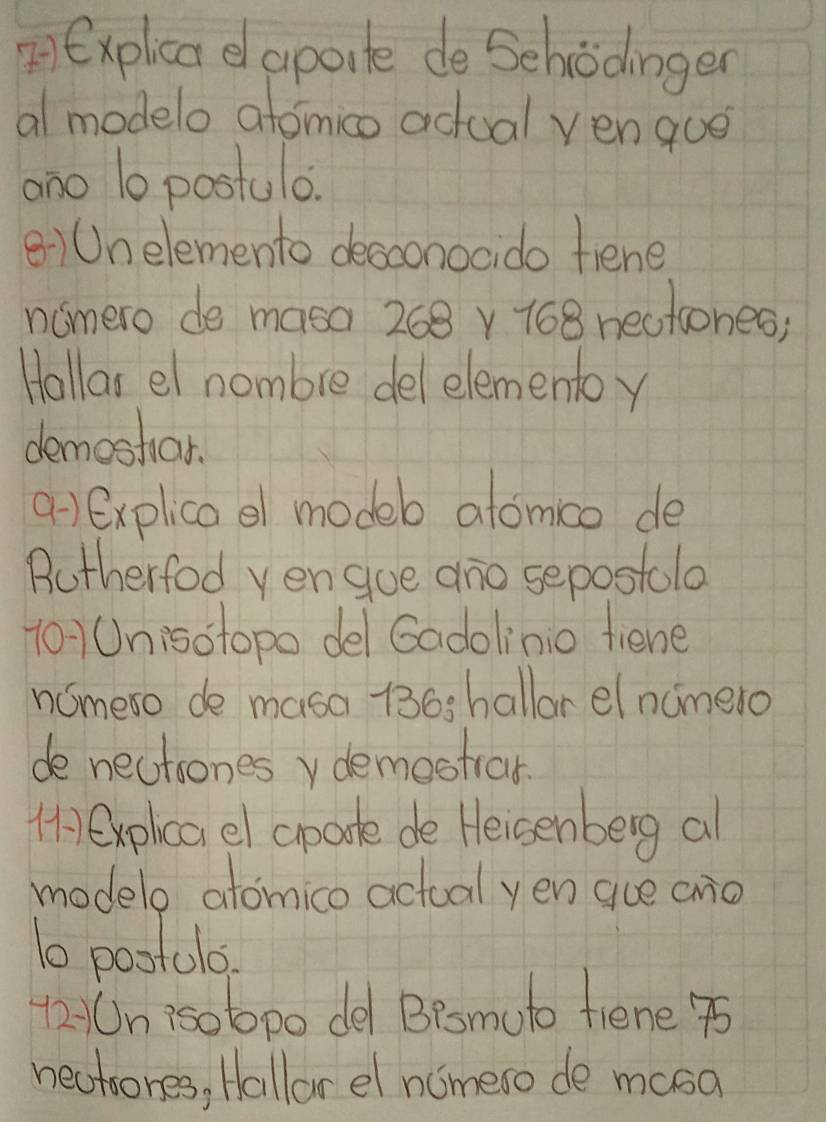 7-) Explica el aporte de Sehrödinger
al modelo atómico actual y en que
año lo postuló.
8-) Un elemento desconocido tiene
número de masa 268 y 168 neutrones;
Hallar el nombre del elemento y
demostrar.
9-) Explica el modelo atómico de
Rutherfod y en que año se postulo
10-) Un isótopo del Gadolinio tiene
número de masa 136; hallar el número
de neutrones y demostrar.
11-) Explica el aporte de Heisenberg al
modelo atómico actual y en que año
lo postuló.
12-) Un isotopo del Bismuto tiene 75
neutrones, Hallar el número de masa